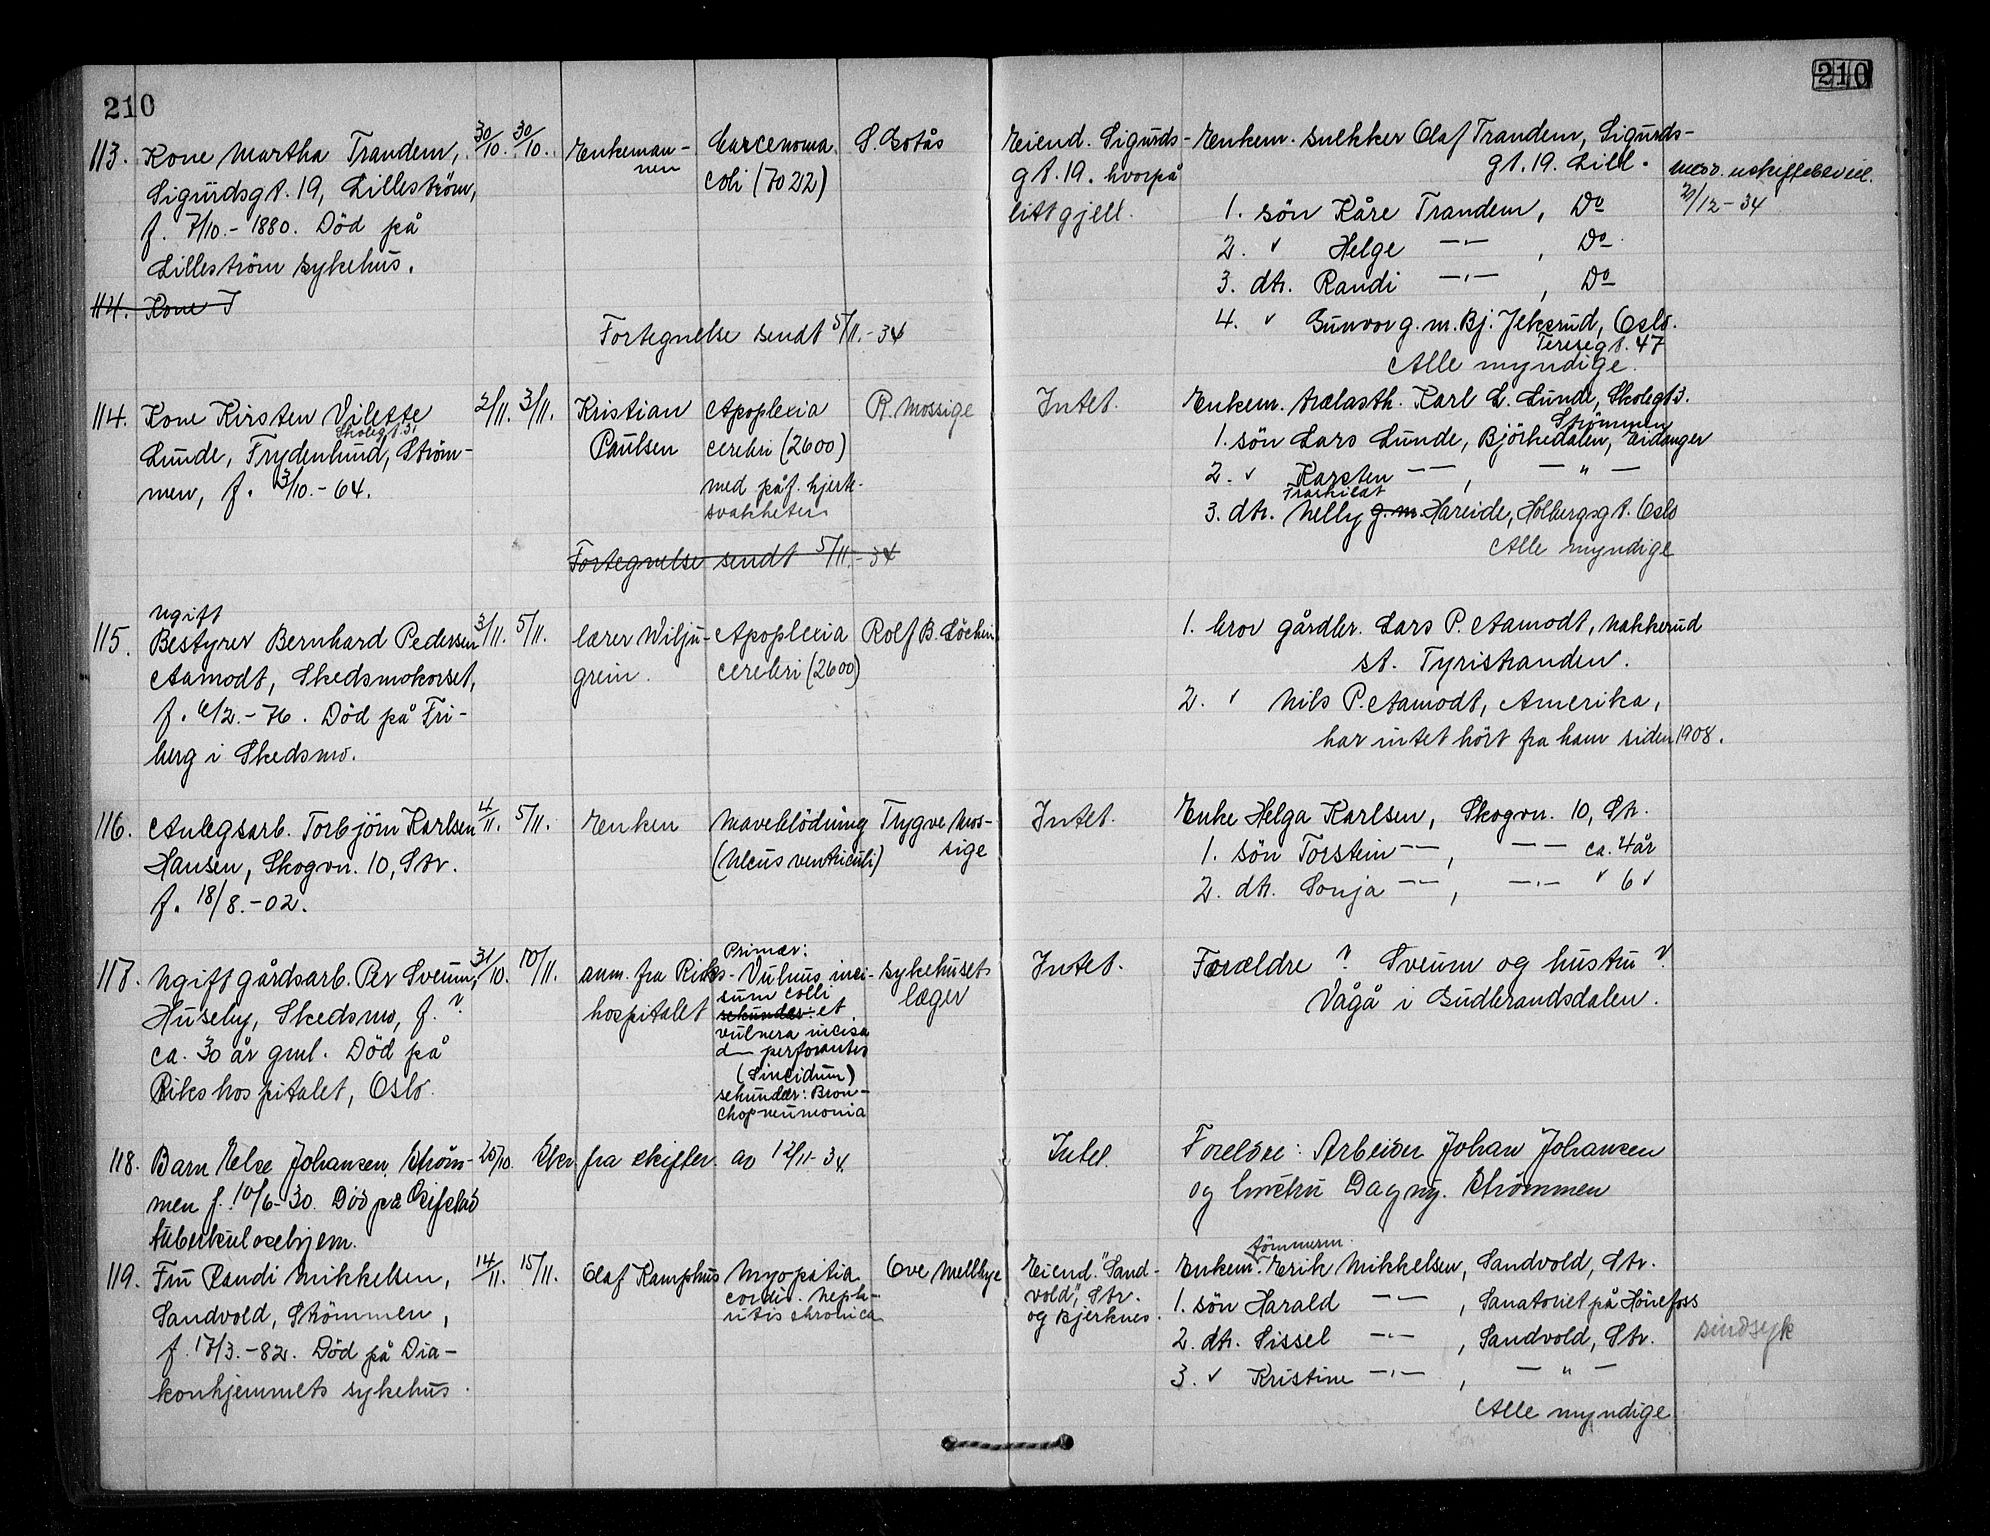 210
210
113. Kone Martha Trandem, 30/10. 30/10. Enkeman- Carcenoma S. Sotås Eiend. Sigurds- Enkem. snekker Olaf Trandem, Sigurds-
nen coli (7022) gt. 19. hvorpå gt. 19. Lill.
Sigurdsgt. 19, Lilleström, litt gjell. 1. sön Kåre Trandem, Do
f. 7/10.-1880. Död på 2. " Helge -"- , Do
Lilleström sykehus. 3. dtr. Randi -"- , Do
4. " Gunvor g.m. Bj. Jelksrud, Oslo.
Teresegt. 47
Alle myndige.
uskiftebevill.
21/12-34
114. Kone T
Fortegnelse sendt 5/11.-34
114. Kone Kirsten Vilette 2/11. 3/11. Kristian Apoplexia R. Mossige Intet. Enkem. trælasth. Karl L. Lunde, Skolegt 3.
Skolegt. 3. Strømmen
Lunde, Frydenlund, Ström- Paulsen cerebri (2600) 1. sön Lars Lunde, Björkedalen, Eidanger
men, f. 3/10.-64. med påf. hjerte- 2. " Karsten -"- , - " -
svakheter Fraskilt
3. dtr. Nelly g.m. Hareide, Holbergsgt. Oslo
Fortegnelse sendt 5/11.-34 Alle myndige
ugift
115. Bestyrer Bernhard Pedersen 3/11. 5/11. lærer Wilju- Apoplexia Rolf B. Löchen 1. bror gårdbr. Lars P. Aamodt, Nakkerud
Aamodt, Skedsmokorset, grein. cerebri (2600) st. Tyristranden.
f. 6/2.-76. Död på Fri- 2. " Nils P. Aamodt, Amerika,
berg i Skedsmo. har intet hört fra ham siden 1908.
116. Anlegsarb. Torbjörn Karlsen 4/11. 5/11. Enken Maveblödning Trygve Mos- Intet. Enke Helga Karlsen, Skogvn. 10, Str.
Hansen, Skogvn. 10, Str. (Ulcus ventriculi) sige 1. sön Torstein -"- , -"- ca. 4 år
f. 18/8.-02. 2. dtr. Sonja -"- , -"- " 6 "
117. Ugift gårdsarb. Per Sveum, 31/10. 10/11. anm. fra Riks- Primær: Vulnus inci- sykehusets Intet. Forældre ? Sveum og hustru ?
Huseby, Skedsmo, f. ? hospitalet sum colli læger Vågå i Gudbrandsdalen.
ca. 30 år gml. Död på sekundær: et
Rikshospitalet, Oslo. vulnera incisa
d- perforantes
(Siucidum)
sekundær: Bron-
chopneumonia
118. Barn Else Johansen Ström- 25/10. Skr. fra skifter. av 12/11-34. Intet. Foreldre: Arbeider Johan Johansen
men f. 10/6-30. Död på Gifstad og hustru Dagny. Strömmen
tuberkulosehjem.
119. Fru Randi Mikkelsen, 14/11. 15/11. Olaf Kamphus Myopatia Ove Mellbye Eiend. "Sand- Enkem. tömmerm. Erik Mikkelsen, Sandvold, Str.
Sandvold, Strömmen, cordis. Neph- vold", Str. 1. sön Harald -"- , Sanatoriet på Hönefoss
f. 17/3.-82. Död på Dia- ritis chronica og Bjerknes. 2. dtr. Sissel -"- , Sandvold, Str. sindsyk
konhjemmets sykehus. 3. " Kristine -"- , - " -
Alle myndige